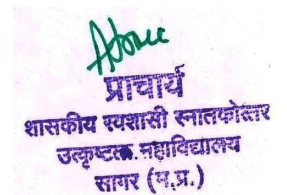 प्राचार्य
शासकीय स्वशासी स्नातकोत्तर
उत्कृष्टता महाविद्यालय
सागर (म.प्र.)